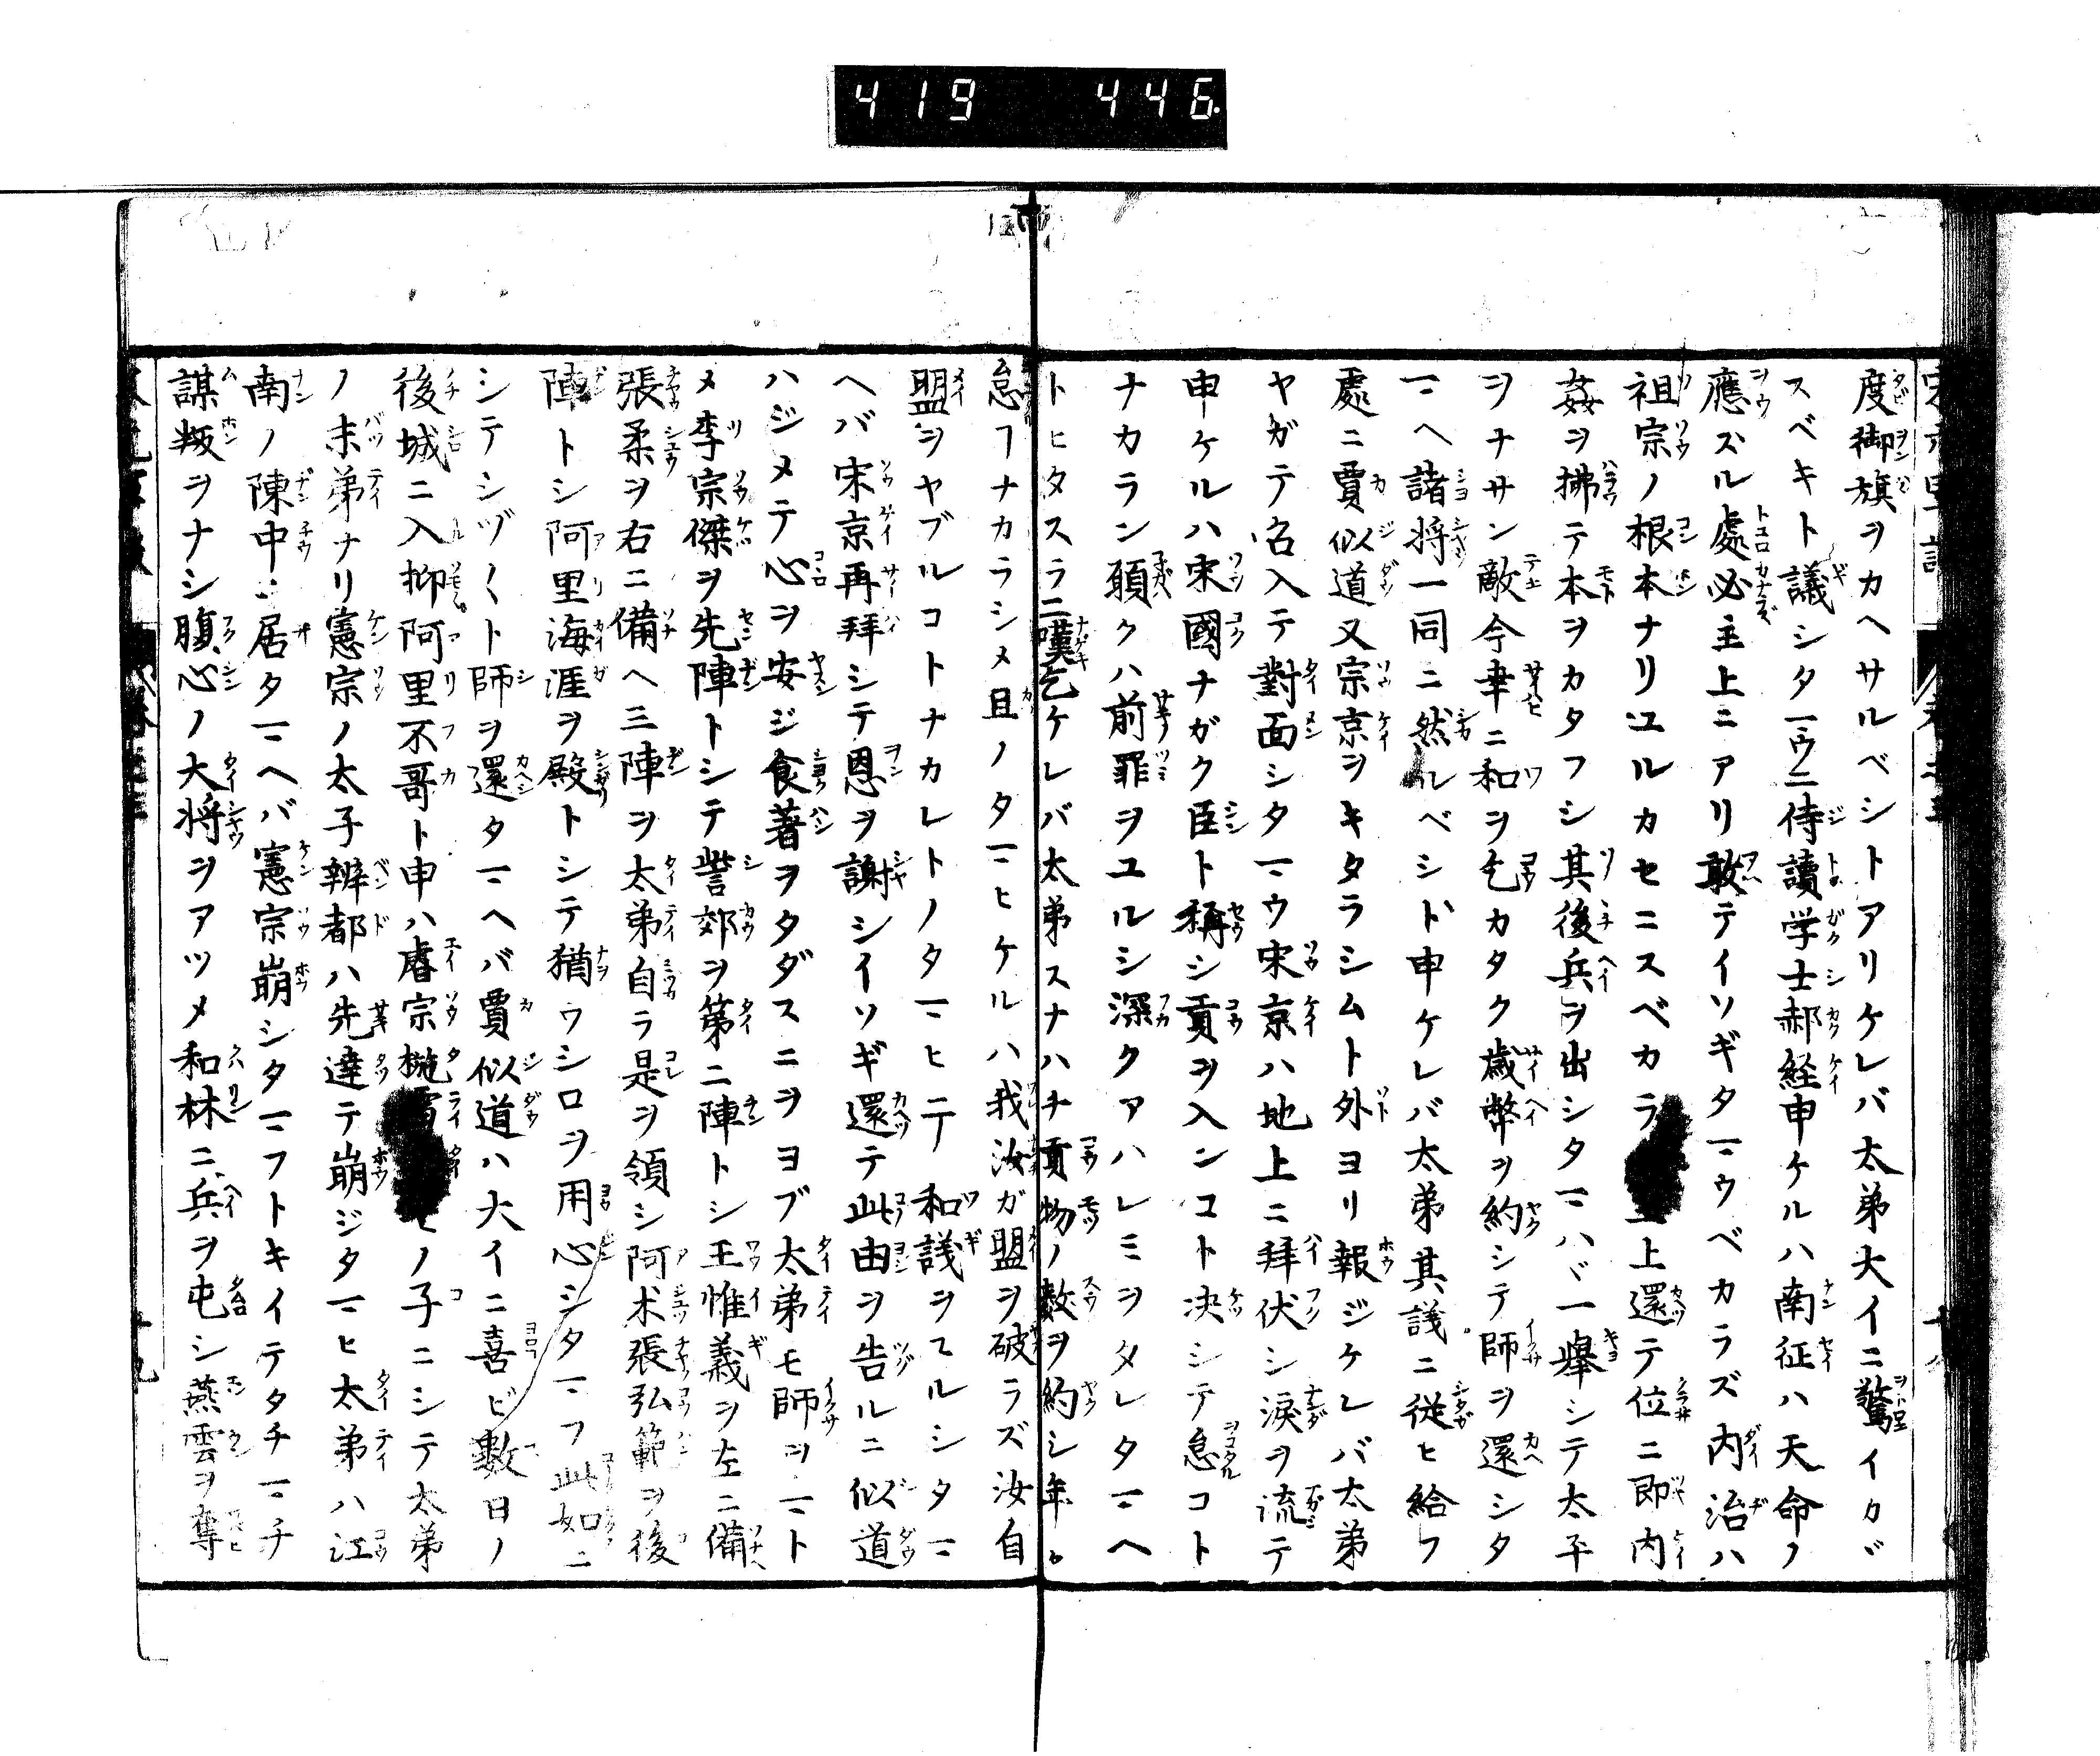 419 446
度御旗ヲカヘサルベシトアリケレバ太弟大イニ驚イカヾ
スベキト議シタマウニ侍讀学士郝経申ケルハ南征ハ天命ノ
應ズル處必主上ニアリ敢テイソギタマウベカラズ内治ハ
祖宗ノ根本ナリユルカセニスベカラ 上還テ位ニ即内
姦ヲ拂テ本ヲカタフシ其後兵ヲ出シタマハヾ一擧シテ太平
ヲナサン敵今幸ニ和ヲ乞カタク歳幣ヲ約シテ師ヲ還シタ
マヘ諸将一同ニ然ルベシト申ケレバ太弟其議ニ従ヒ給フ
處ニ賈似道又宗京ヲキタラシムト外ヨリ報ジケレバ太弟
ヤガテ召入テ對面シタマウ宋京ハ地上ニ拜伏シ涙ヲ流テ
申ケルハ宋國ナガク臣ト稱シ貢ヲ入ンコト决シテ怠コト
ナカラン願クハ前罪ヲユルシ深クアハレミヲタレタマヘ
トヒタスラニ嘆乞ケレバ太弟スナハチ貢物ノ数ヲ約シ年々
怠フナカラシメ且ノタマヒケルハ我汝ガ盟ヲ破ラズ汝自
盟ヲヤブルコトナカレトノタマヒテ和議ヲユルシタマ
ヘバ宋京再拜シテ恩ヲ謝シイソギ還テ此由ヲ告ルニ似道
ハジメテ心ヲ安ジ食著ヲタダスニヲヨブ太弟モ師ヲマト
メ李宗傑ヲ先陣トシテ訾郊ヲ第二陣トシ王惟義ヲ左ニ備
張柔ヲ右ニ備ヘ三陣ヲ太弟自ラ是ヲ領シ阿术張弘範ヲ後
陣トシ阿里海涯ヲ殿トシテ猶ウシロヲ用心シタマフ此如ニ
シテシヅ〱ト師ヲ還タマヘバ賈似道ハ大イニ喜ビ數日ノ
後城ニ入抑阿里不哥ト申ハ睿宗 ノ子ニシテ太弟
ノ末弟ナリ憲宗ノ太子辨都ハ先達テ崩ジタマヒ太弟ハ江
南ノ陳中ニ居タマヘバ憲宗崩シタマフトキイテタチマチ
謀叛ヲナシ腹心ノ大将ヲアツメ和林ニ兵ヲ屯シ燕雲ヲ奪